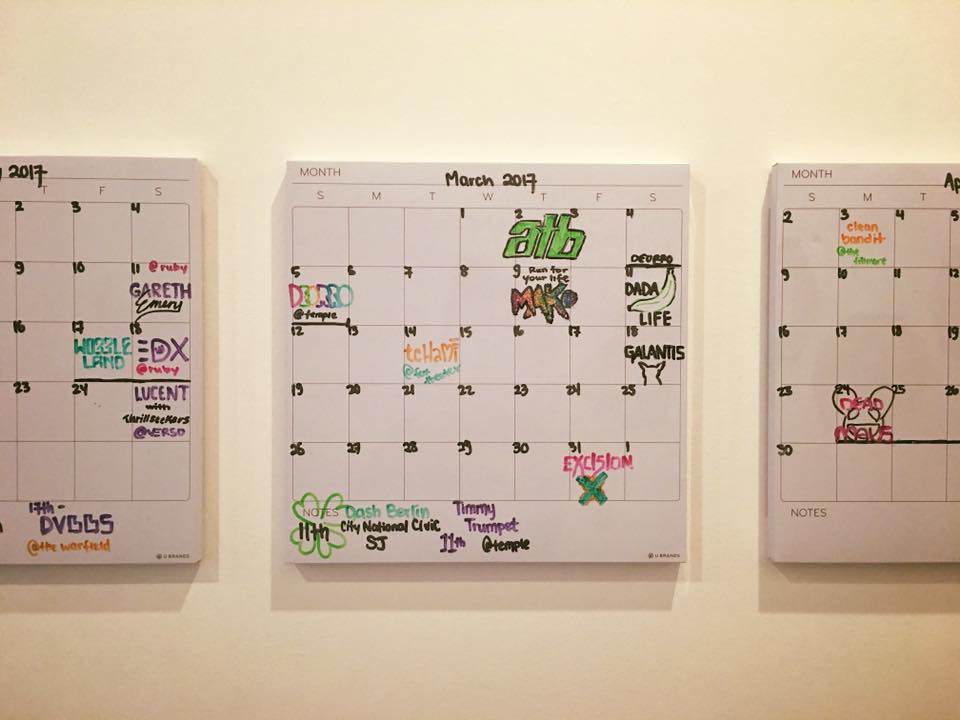 y 2017
T F S
2 3 4
9 10 11 @ruby
GARETH
Emery
16 17 18
WOBBLE
LAND
EDX
@ruby
23 24
LUCENT
with
Thrillseekers
@VERSO
17th -
DVBBS
@the warfield
U BRANDS
MONTH
March 2017
S M T W T F S
1 2 3 4
atb
DEORRO
5 6 7 8 9
DEORRO
@temple
Run for
your life
MAKO
DADA
LIFE
12 13 14 15 16 17 18
tcHaMi
GALANTIS
19 20 21 22 23 24 25
26 27 28 29 30 31 1
EXCISION
X
NOTES
11th
Dash Berlin
City National Civic
SJ
Timmy
Trumpet
11th @temple
U BRANDS
MONTH
Ap
S M T
2 3 4 5
clean
bandit
@the
fillmore
9 10 11 12
16 17 18 19
23 24 25 26
DEAD
MAU5
30
NOTES